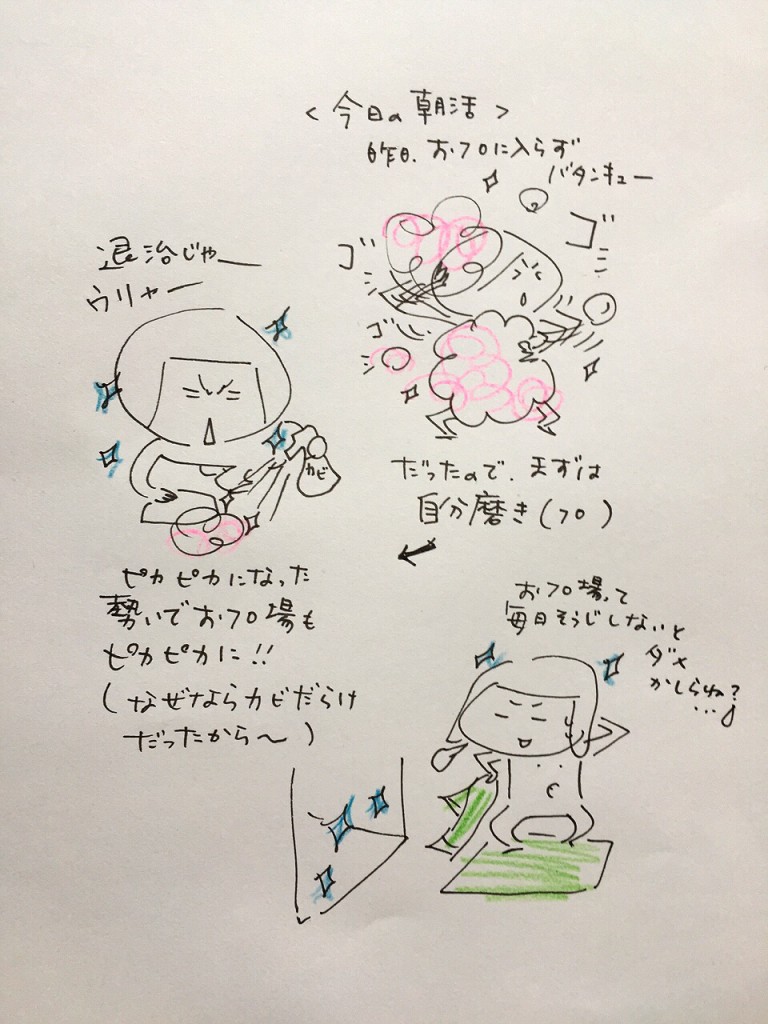 <今日の朝活>
昨日、お7ロに入らず
バタンキュー
ゴ
ゴ
ゴ
だったので、まずは
自分磨き(フロ)
退治じゃー
ウリャー
カビ
ピカピカになった
勢いでおフロ場も
ピカピカに!!
(なぜならカビだらけ
だったから〜)
おフロ場って
毎日そうじしないと
ダメ
かしらね?
...